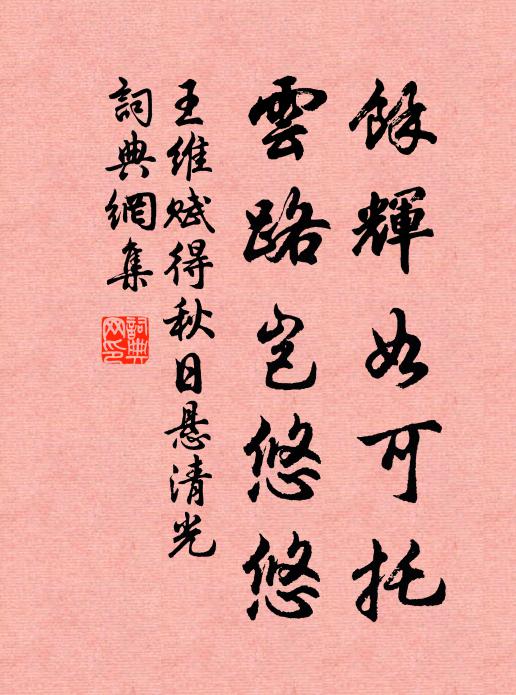 餘輝如可托
雲路岂悠悠
王維赋得秋日悬清光
詞典網集
詞典网印